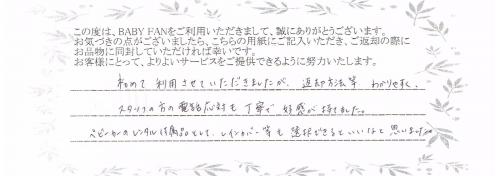 この度は、BABY FANをご利用いただきまして、誠にありがとうございます。
お気づきの点がございましたら、こちらの用紙にご記入いただき、ご返却の際に
お品物に同封していただければ幸いです。
お客様にとって、よりよいサービスをご提供できるように努力いたします。
初めて利用させていただきましたが、返却方法等わかりやすく、
スタッフの方の電話応対も丁寧で好感が持てました。
ベビーカーのレンタル付属品として、レインカバー等も選択できるといいなと思いました。